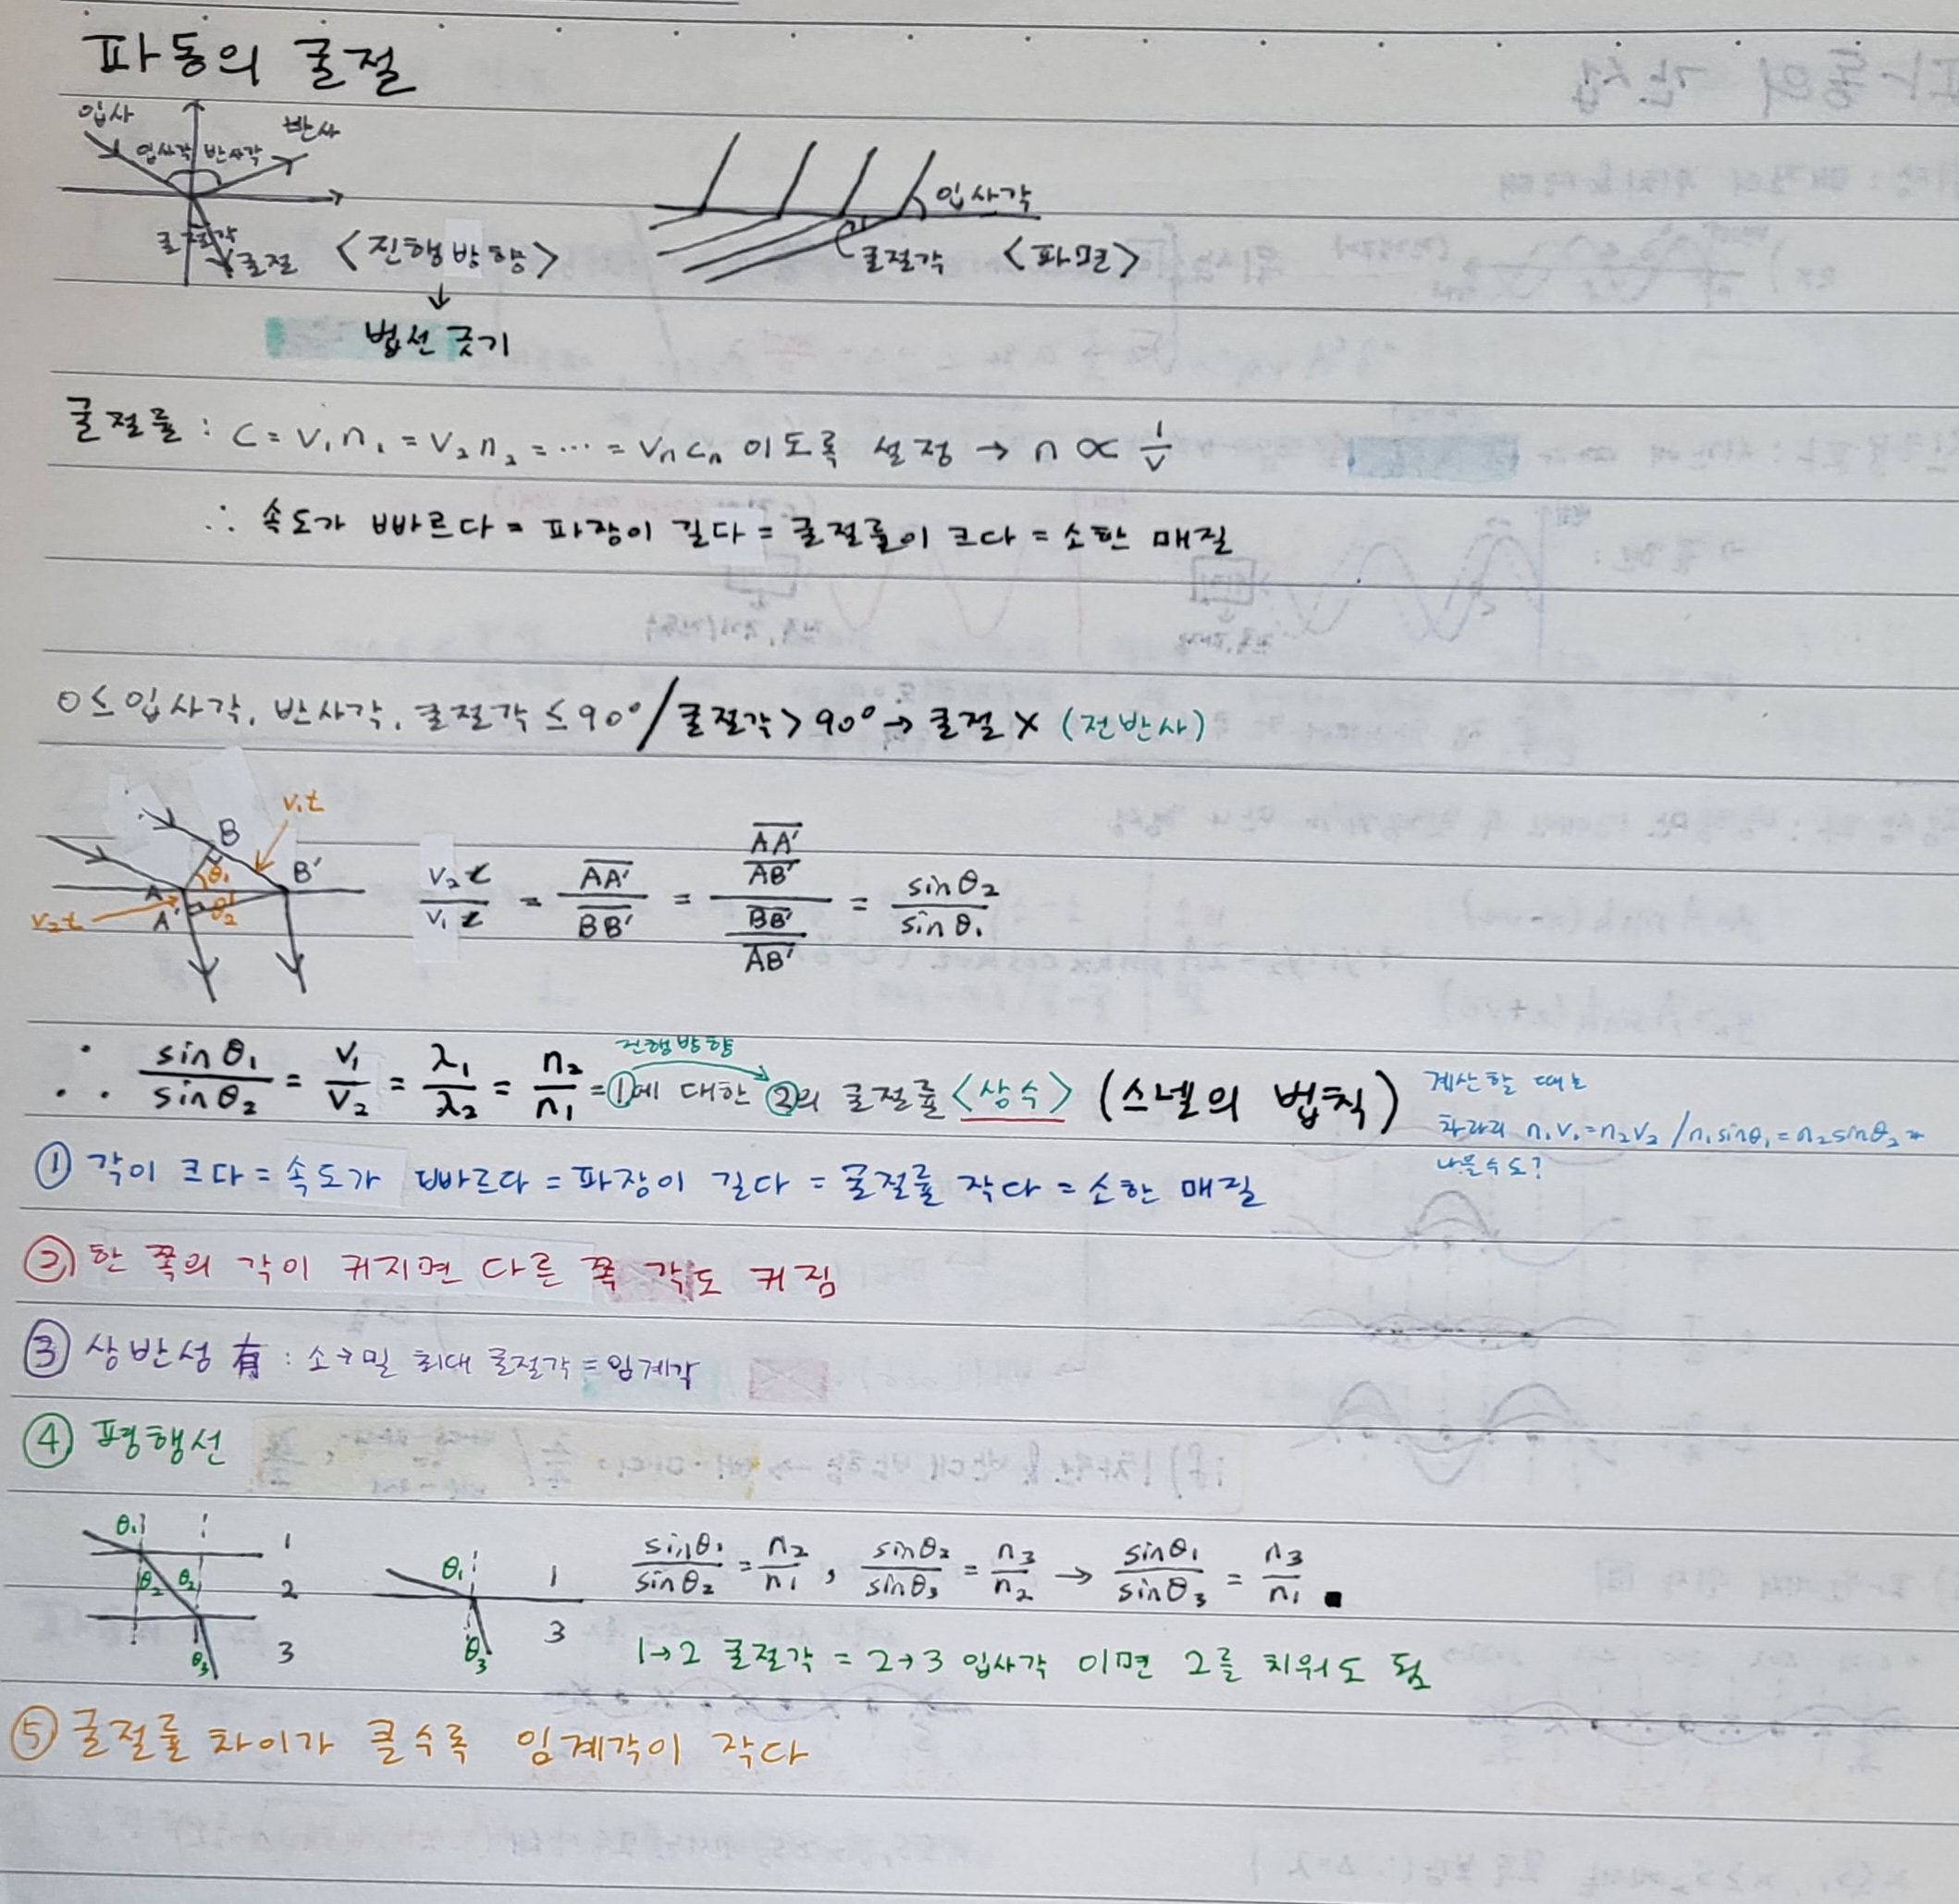 파동의 굴절
입사
입사각 반사각
반사
굴절각
굴절
<진행방향>
↓
법선 긋기
입사각
굴절각
<파면>
굴절률 : C = V₁n₁ = V₂n₂ = ⋯ = Vₙcₙ 이도록 설정 → n ∝ 1/v
∴ 속도가 빠르다 = 파장이 길다 = 굴절률이 크다 = 소한 매질
0 ≤ 입사각, 반사각, 굴절각 ≤ 90° / 굴절각 > 90° → 굴절 X (전반사)
v₁t
B
B'
θ₁
A
A'
θ₂
v₂t
v₂t/v₁t = AA'/BB' = (AA'/AB')/(BB'/AB') = sinθ₂/sinθ₁
진행방향
∴ sinθ₁/sinθ₂ = v₁/v₂ = λ₁/λ₂ = n₂/n₁ = ①에 대한 ②의 굴절률 <상수> (스넬의 법칙)
계산할 때는
차라리 n₁v₁=n₂v₂ / n₁sinθ₁=n₂sinθ₂가
나을수도?
① 각이 크다 = 속도가 빠르다 = 파장이 길다 = 굴절률 작다 = 소한 매질
② 한 쪽의 각이 커지면 다른 쪽 각도 커짐
③ 상반성 有 : 소→밀 최대 굴절각 = 임계각
④ 평행선
θ₁
1
θ₂ θ₂
2
θ₃
3
θ₁
1
θ₃
3
sinθ₁/sinθ₂ = n₂/n₁, sinθ₂/sinθ₃ = n₃/n₂ → sinθ₁/sinθ₃ = n₃/n₁ ■
1→2 굴절각 = 2→3 입사각 이면 2를 치워도 됨
⑤ 굴절률 차이가 클수록 임계각이 작다